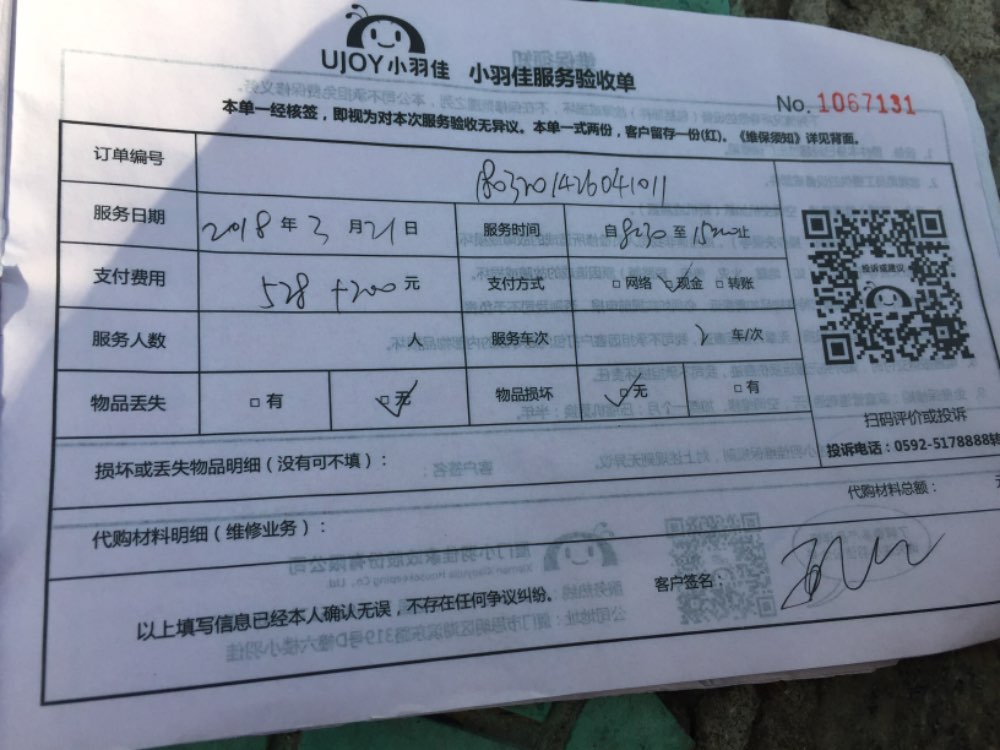 UJOY小羽佳 小羽佳服务验收单
No. 1067131
本单一经核签，即视为对本次服务验收无异议。本单一式两份，客户留存一份(红)。《维保须知》详见背面。
订单编号 1803201426041011
服务日期 2018 年 3 月 21 日 服务时间 自 8:30 至 15:00 止
支付费用 528 +200 元 支付方式 □ 网络 ☑ 现金 □ 转账
服务人数 人 服务车次 2 车/次
物品丢失 □ 有 ☑ 无 物品损坏 ☑ 无 □ 有
投诉或建议
扫码评价或投诉
投诉电话：0592-5178888转
损坏或丢失物品明细（没有可不填）：
代购材料明细（维修业务）： 代购材料总额：
以上填写信息已经本人确认无误，不存在任何争议纠纷。 客户签名：